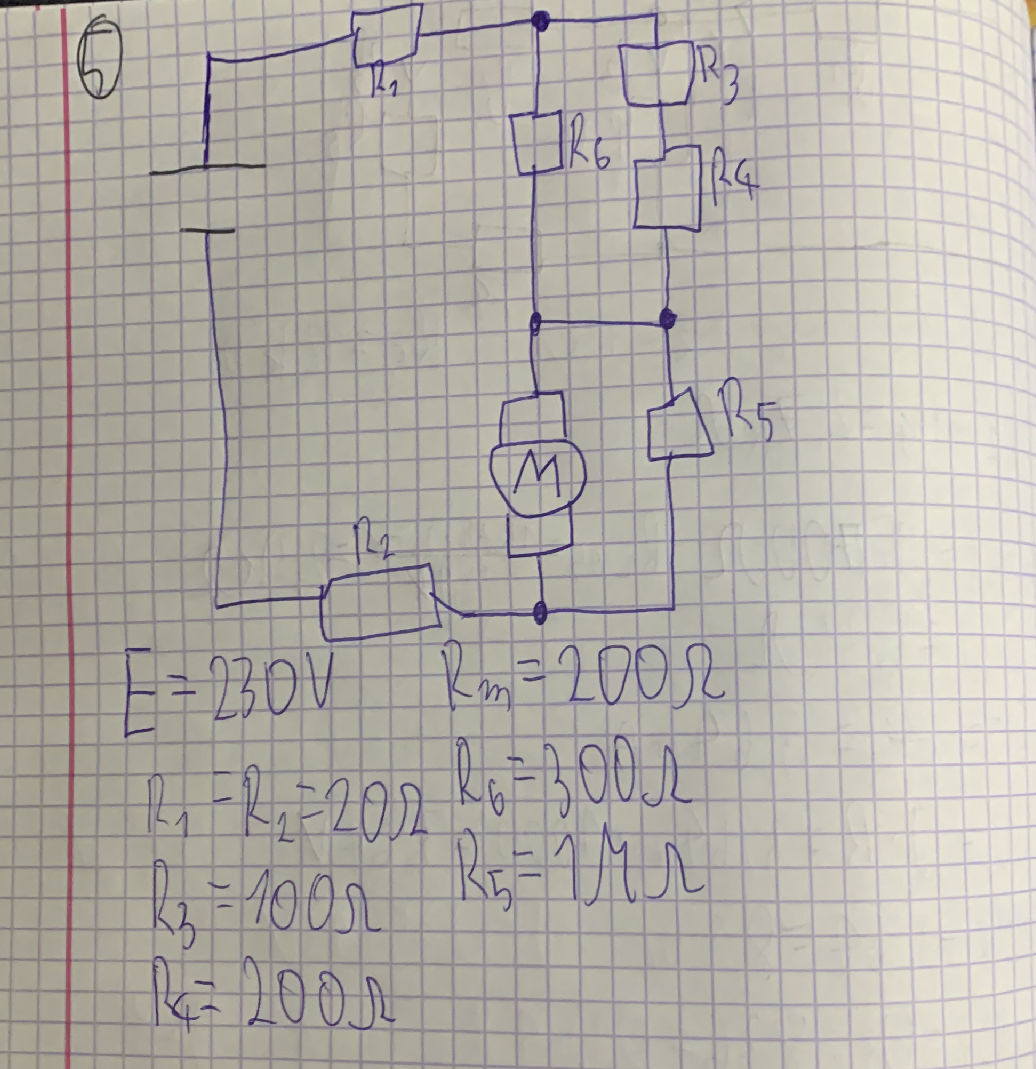 5
R1
R3
R6
R4
R5
M
R2
E = 230V
Rm = 200Ω
R1 = R2 = 20Ω
R6 = 300Ω
R5 = 1MΩ
R3 = 100Ω
R4 = 200Ω